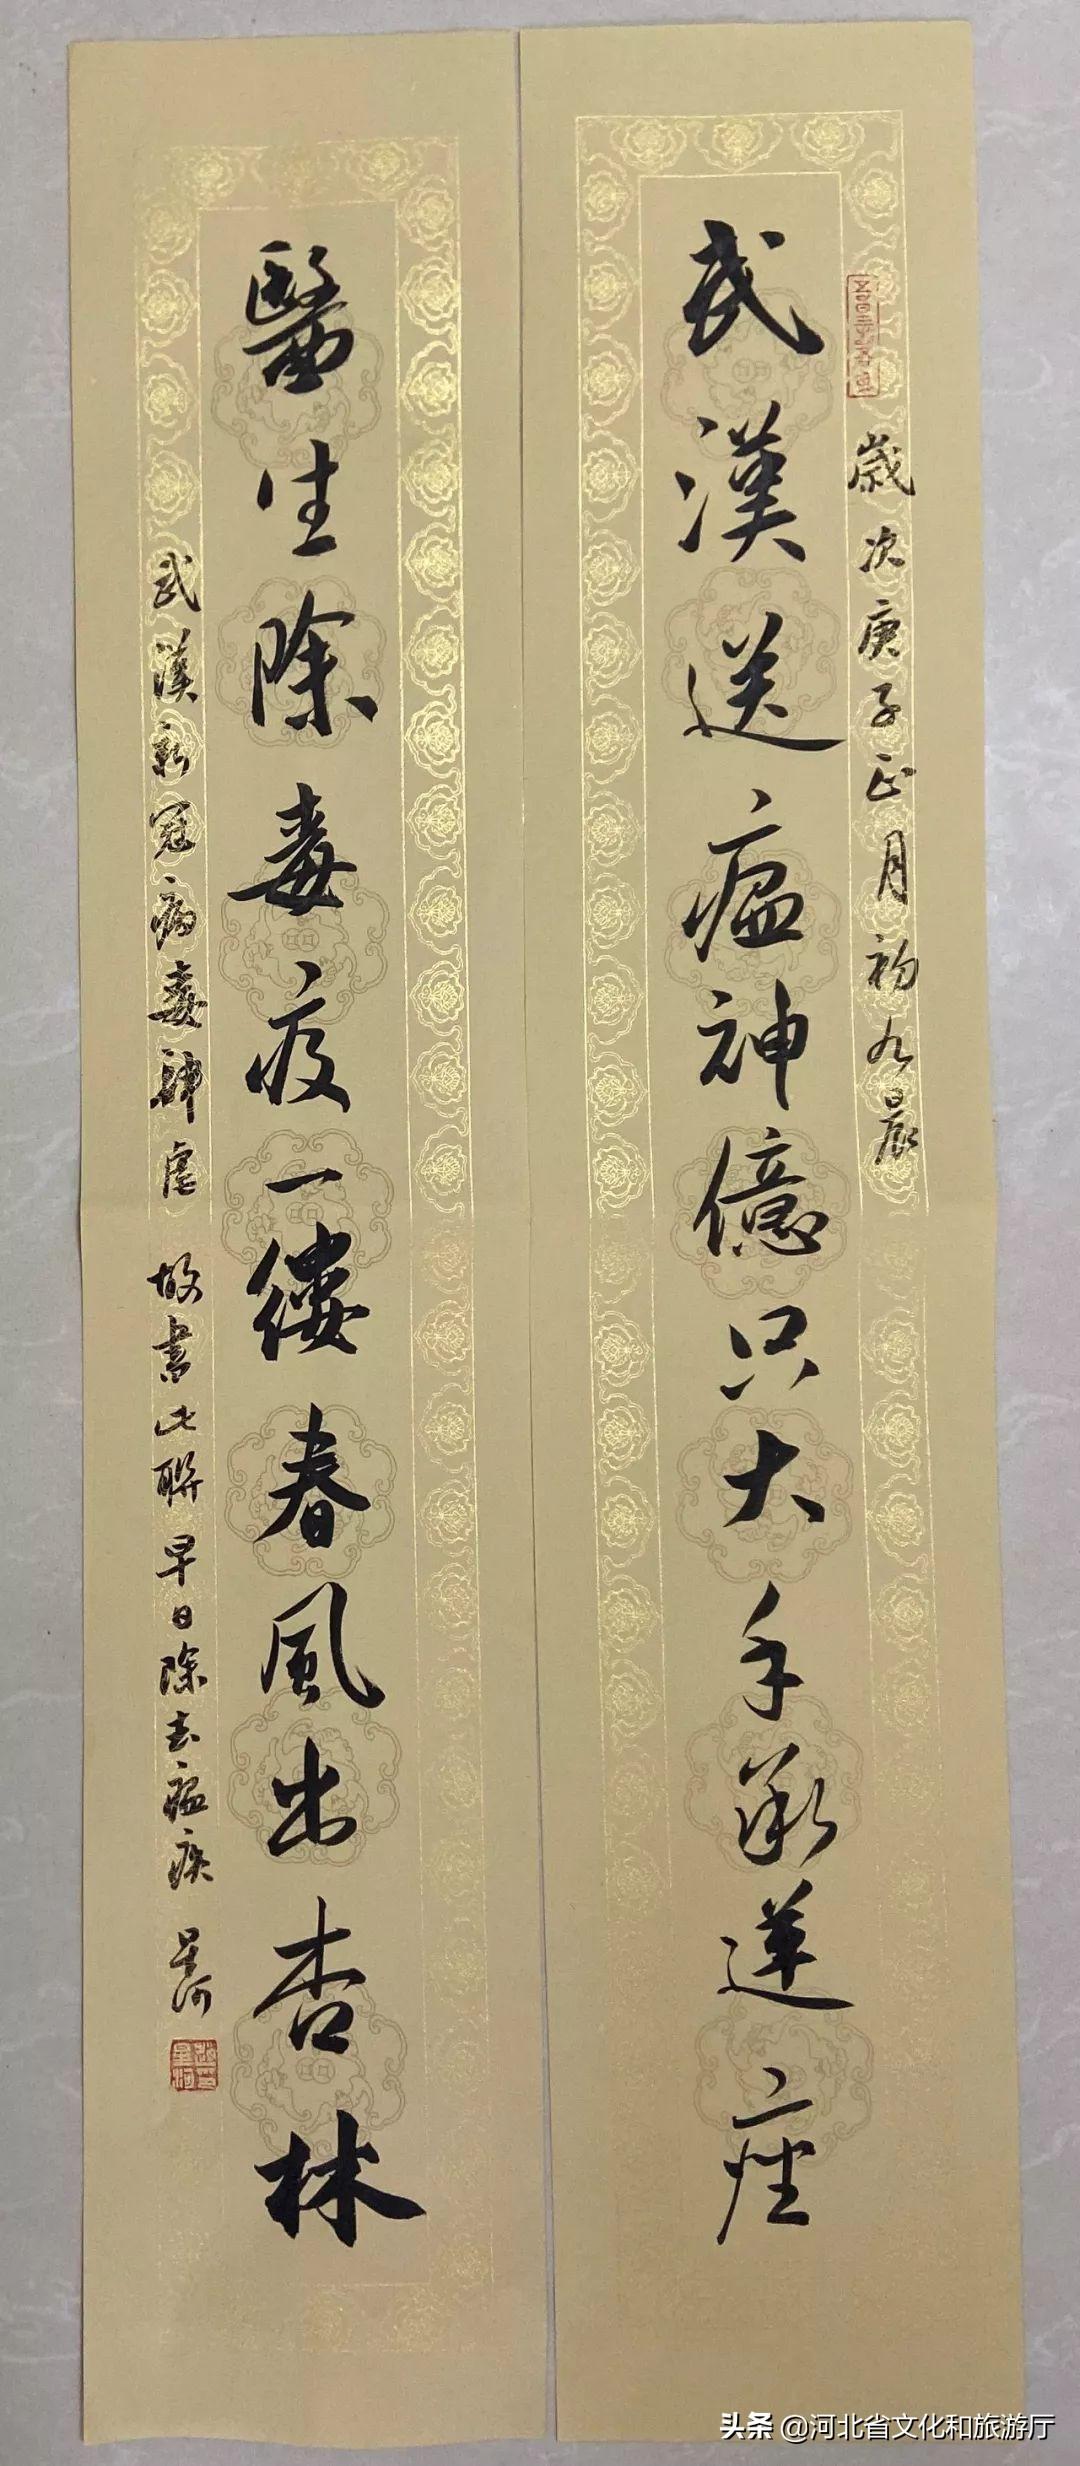 歲次庚子正月初九晨
武漢送瘟神億只大手承蓮座
醫生除毒疫一縷春風出杏林
武漢新冠病毒肆虐 故書此聯 早日除去瘟疾 星河
头条 @河北省文化和旅游厅